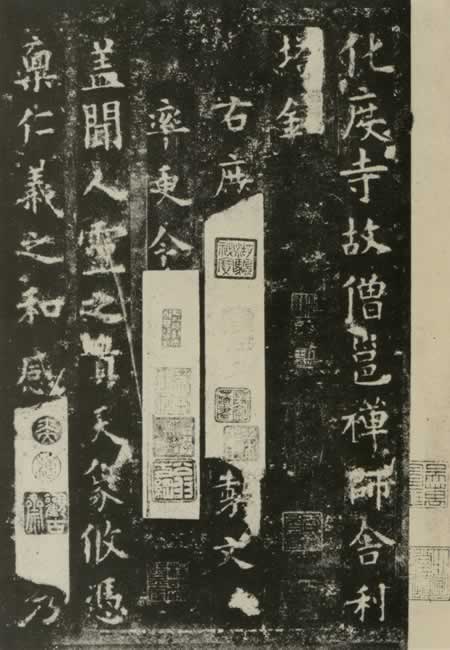 化度寺故僧邕禅師舎利
塔銘
右庶製文
率更令
盖聞人靈之貴天象攸憑
稟仁義之和感乃